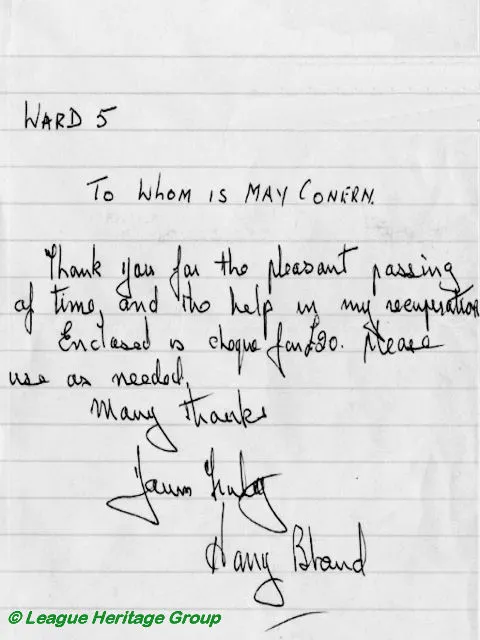 WARD 5
TO WHOM IS MAY CONERN.
Thank you for the pleasant passing
of time, and the help in my recuperation
Enclosed is cheque for £30. Please
use as needed.
Many thanks
Yours Truly
Harry Brand
© League Heritage Group